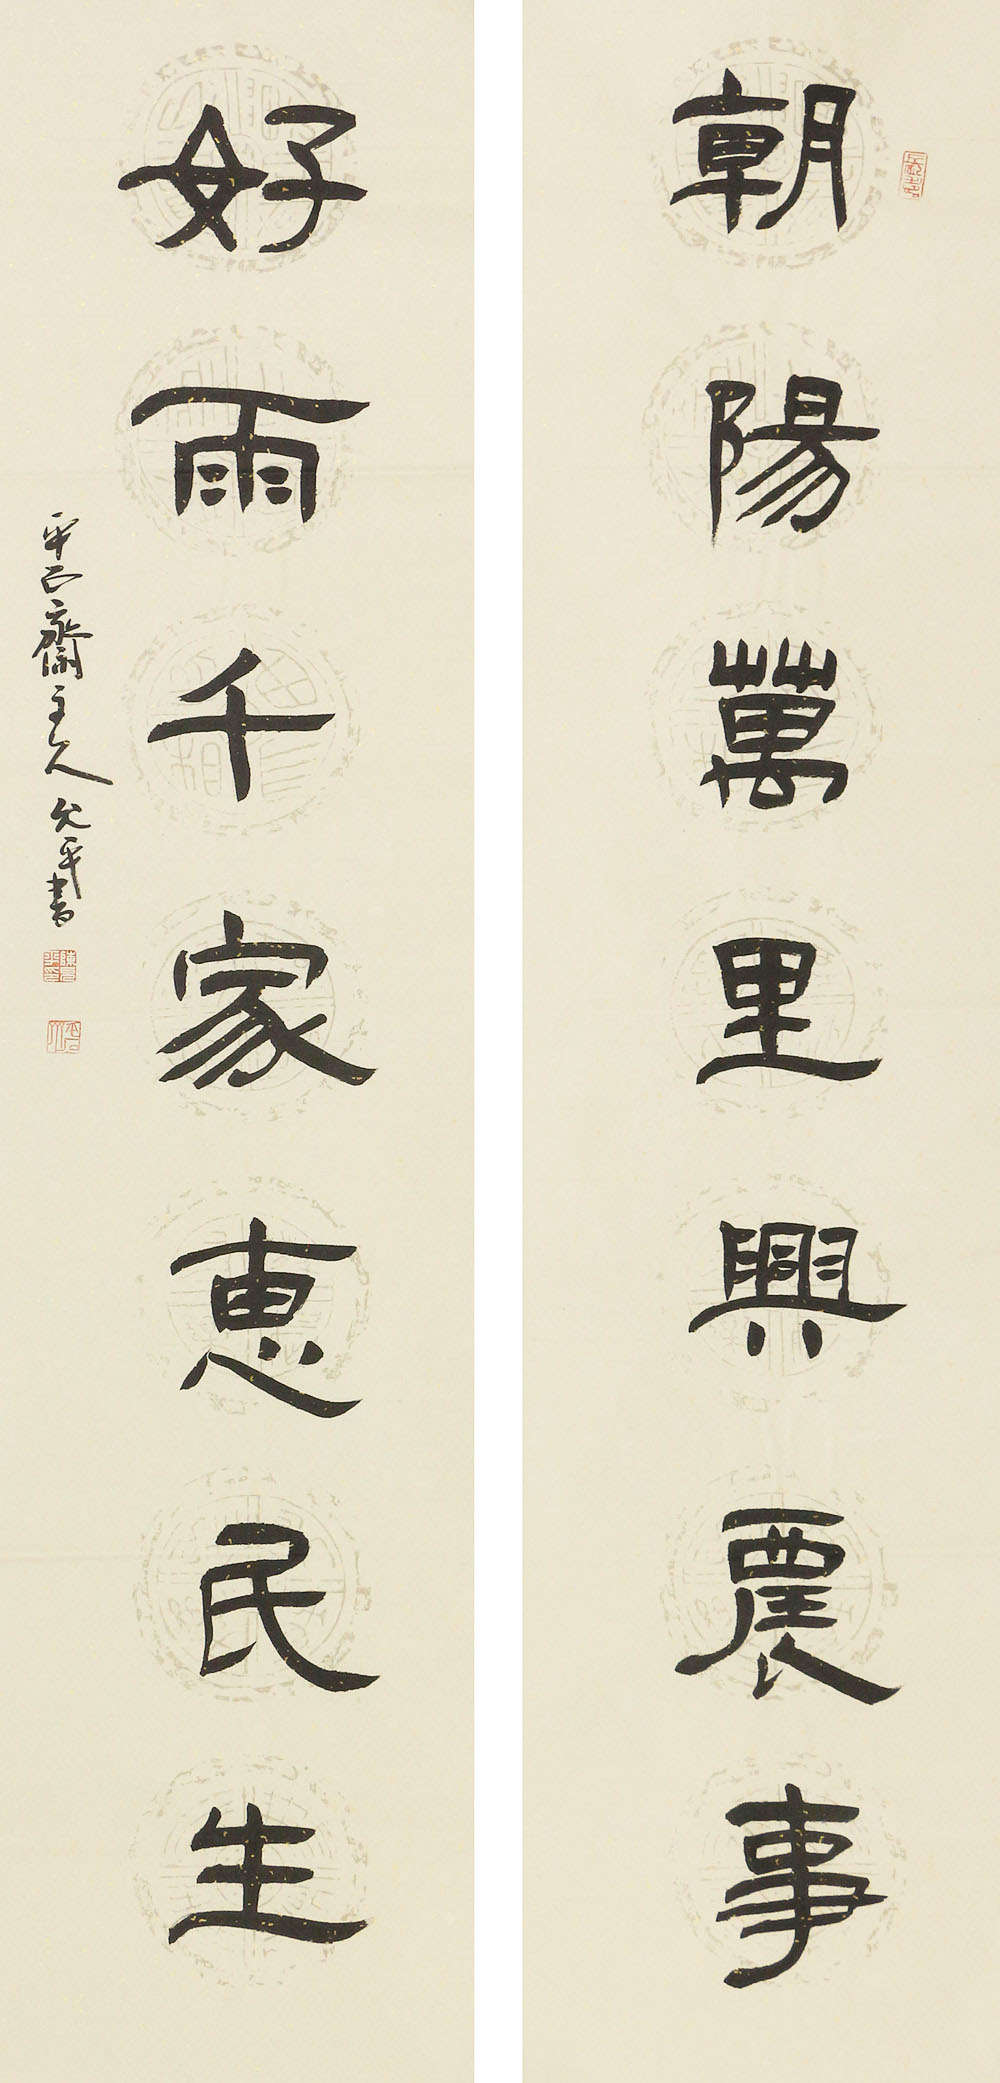 朝陽萬里興農事
好雨千家惠民生
平正齋主人允平書